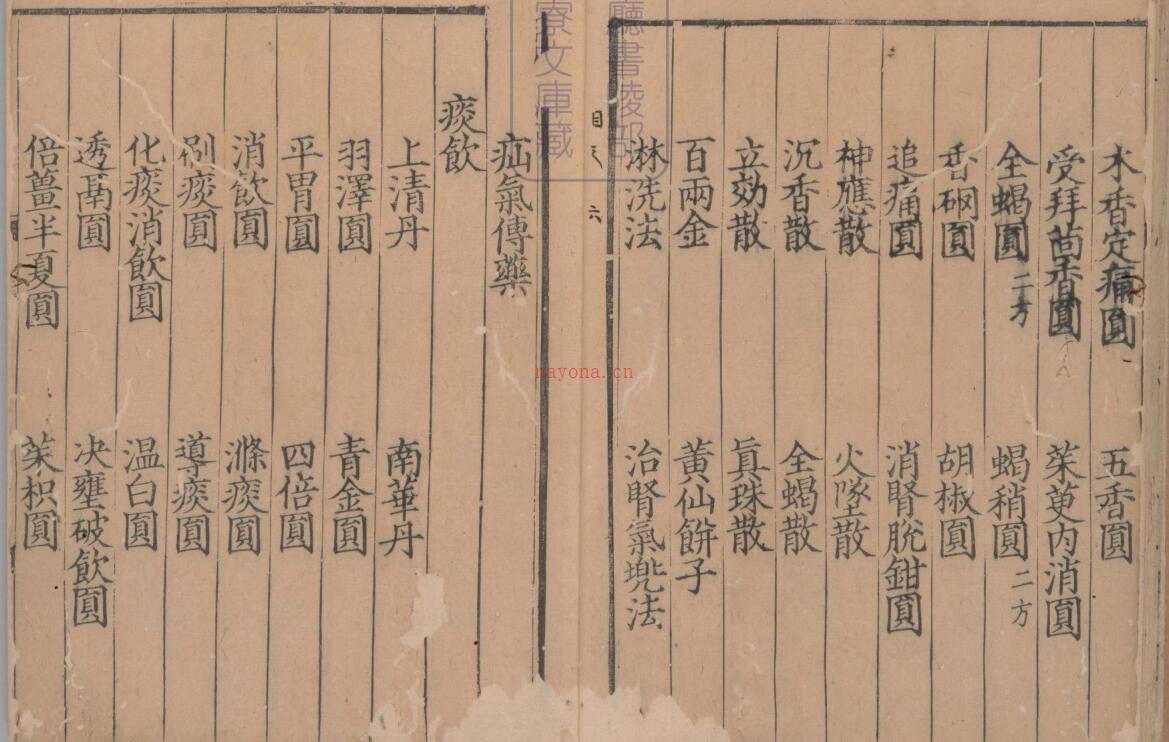 木香定痛圓 五香圓
受拜茴香圓 茱萸內消圓
全蝎圓二方 蝎稍圓二方
香硇圓 胡椒圓
追痛圓 消腎脫鉗圓
神應散 火墜散
沉香散 全蝎散
立効散 眞珠散
百兩金 黃仙餅子
淋洗法 治腎氣法
目 六
廳書陵部
寮文庫藏
nayona.cn
疝氣傳藥
痰飲
上清丹 南華丹
羽澤圓 青金圓
平胃圓 四倍圓
消飲圓 滌痰圓
痰圓 導痰圓
化痰消飲圓 温白圓
透鬲圓 决壅破飲圓
倍薑半夏圓 茱枳圓